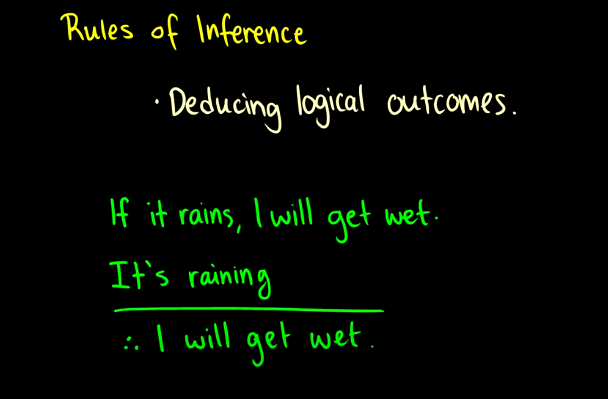 Rules of Inference
· Deducing logical outcomes.
If it rains, I will get wet.
It's raining
∴ I will get wet.